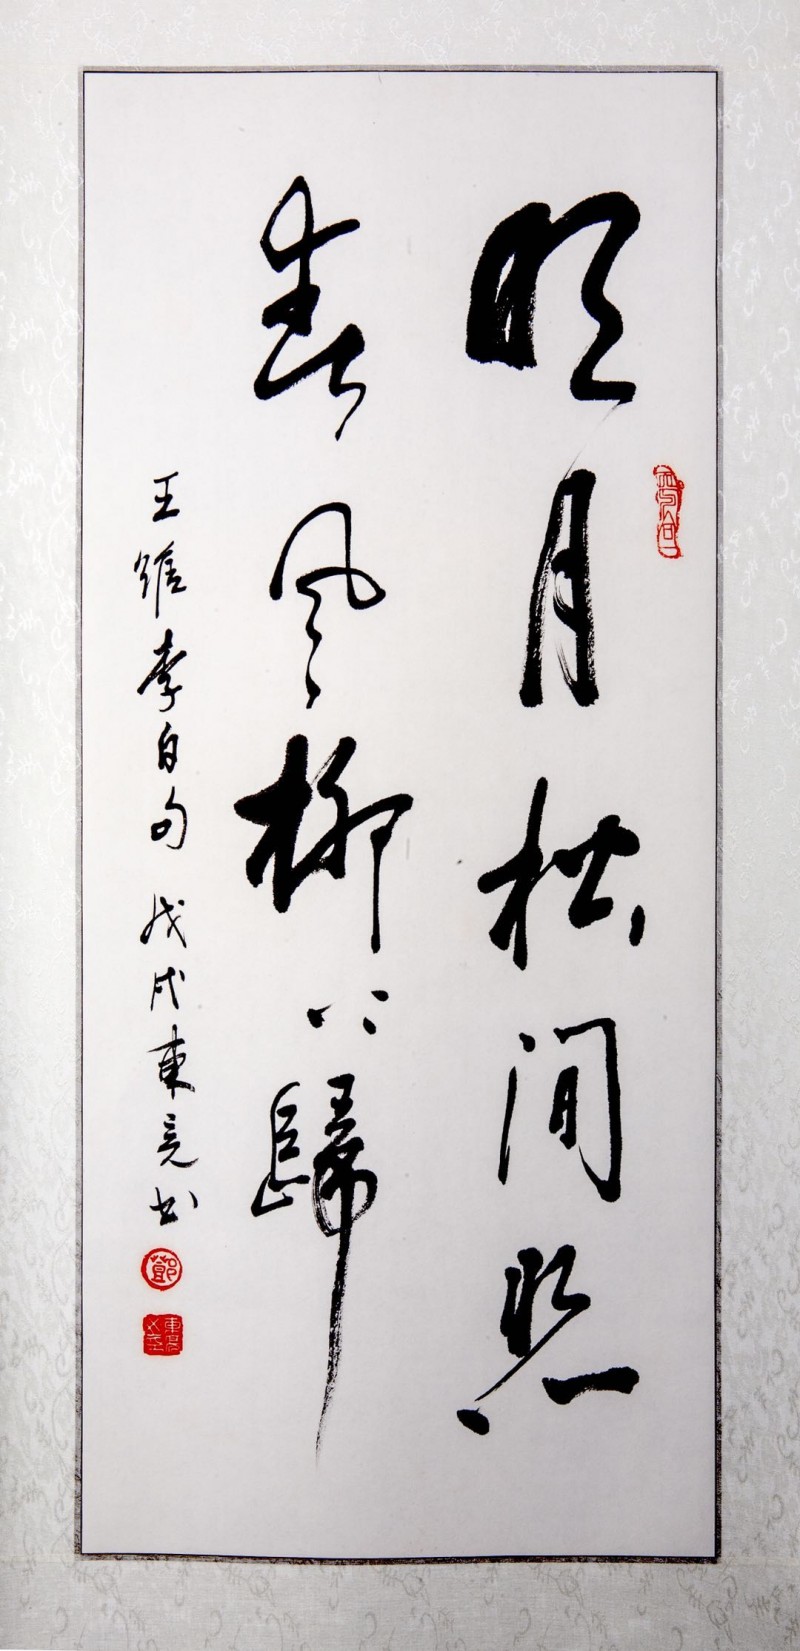 明月松間照
春風柳上歸
王維李白句 戊戌東亮書